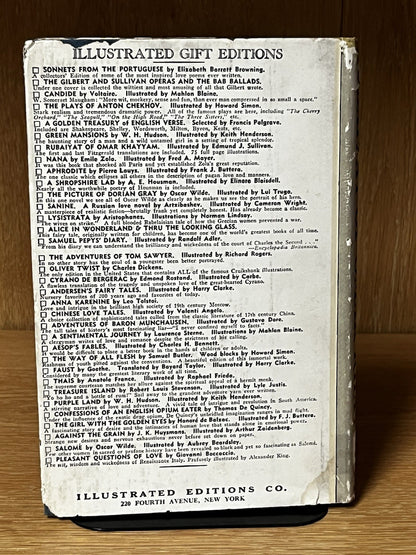 ILLUSTRATED GIFT EDITIONS
SONNETS FROM THE PORTUGUESE by Elizabeth Barrett Browning.
A collectors' Edition of some of the most inspired love poems ever written.
THE GILBERT AND SULLIVAN OPERAS AND THE BAB BALLADS.
Under one cover is collected the wittiest and most amusing of all that Gilbert wrote.
CANDIDE by Voltaire. Illustrated by Mahlon Blaine.
W. Somerset Maugham: "More wit, mockery, sense and fun, than ever man compressed in so small a space."
THE PLAYS OF ANTON CHEKHOV. Illustrated by Howard Simon.
Stark realism and tremendous dramatic power. All of the famous plays are here, including "The Cherry
Orchard," "The Seagull," "On the High Road," "The Three Sisters," etc.
A GOLDEN TREASURY of ENGLISH VERSE. Selected by Francis Palgrave.
Included are Shakespeare, Shelley, Wordsworth, Milton, Byron, Keats, etc.
GREEN MANSIONS by W. H. Hudson. Illustrated by Keith Henderson.
The haunting story of a man and girl untamed girl in a setting of tropical splendor.
RUBAIYAT OF OMAR KHAYYAM. Illustrated by Edmund J. Sullivan.
The first and last Fitzgerald translations are included. 75 full page illustrations.
NANA by Emile Zola. Illustrated by Fred A. Mayer.
It was this book that shocked all Paris and yet established Zola's great reputation.
APHRODITE by Pierre Louys. Illustrated by Frank J. Buttera.
The one classic which eclipses all others in the description of pagan love and manners.
A SHROPSHIRE LAD by A. E. Housman. Illustrated by Elinore Blaisdell.
Nearly all the worthwhile poetry of Housman is included.
THE PICTURE OF DORIAN GRAY by Oscar Wilde. Illustrated by Lui Trugo.
In this one novel we see all of Oscar Wilde as clearly as he makes us see the portrait of his hero.
SANINE, A Russian love novel by Artzibashef. Illustrated by Cameron Wright.
A masterpiece of realistic fiction—brutally frank yet completely honest. Has already become a classic.
LYSISTRATA by Aristophanes. Illustrations by Norman Lindsay.
"The women on strike." A riotous, Rabelaisian tale of how the Grecian women prevented a war.
ALICE IN WONDERLAND & THRU THE LOOKING GLASS.
This fairy tale, originally written for children, has become one of the world's greatest books of all time.
SAMUEL PEPYS' DIARY. Illustrated by Rendolf Adler.
"From his diary we can understand the brilliancy and wickedness of the court of Charles the Second . . ."
—Encyclopedia Britannica.
THE ADVENTURES OF TOM SAWYER. Illustrated by Richard Rogers.
In no other story has the soul of a youngster been better portrayed.
OLIVER TWIST by Charles Dickens.
The only edition in the United States that contains ALL of the famous Cruikshank illustrations.
CYRANO DE BERGERAC by Edmond Rostand. Illustrated by Carbe.
A flawless translation of the tragedy and unspoken love of the great-hearted Cyrano.
ANDERSEN'S FAIRY TALES. Illustrated by Harry Clarke.
Nursery favorites of 200 years ago and favorites of today.
ANNA KARENINE by Leo Tolstoi.
Love and intrigue in the brilliant high society of 19th century Moscow.
CHINESE LOVE TALES. Illustrated by Valenti Angelo.
A choice collection of sophisticated tales culled from the classic literature of 17th century China.
ADVENTURES OF BARON MUNCHAUSEN. Illustrated by Gustave Doré.
The tall tales of history's most fascinating liar—"I never confined myself to facts."
A SENTIMENTAL JOURNEY by Laurence Sterne. Illustrations by Mahlon Blaine.
A clergyman writes of love and romance despite the strictness of his calling.
AESOP'S FABLES. Illustrated by Charles H. Bennett.
It would be difficult to place a better book in the hands of children or adults.
THE WAY OF ALL FLESH by Samuel Butler. Wood blocks by Howard Simon.
Idealism of youth pitted against the conventions. A beautiful edition of this immortal work.
FAUST by Goethe. Translated by Bayard Taylor. Illustrated by Harry Clarke.
Considered by many the greatest literary work of all time.
THAIS by Anatole France. Illustrated by Raphael Friedo.
The supreme courtesan matches her allure against the spiritual appeal of a hermit monk.
TREASURE ISLAND by Robert Louis Stevenson. Illustrated by Lyle Justis.
Yo ho ho and a bottle of rum! Sail away to the grandest adventure story ever written.
PURPLE LAND by W. H. Hudson. Illustrated by Keith Henderson.
A stirring narrative of love and adventure. A vivid tale of intrigue and revolution in South America.
CONFESSIONS OF AN ENGLISH OPIUM EATER by Thomas De Quincey.
Under the influence of the exotic drug opium, De Quincey's unfulfilled imagination surges in mad flight.
THE GIRL WITH THE GOLDEN EYES by Honoré de Balzac. Illustrated by F. J. Buttera.
A fascinating story of desire and the intimacies of human love that stands alone in emotional power.
AGAINST THE GRAIN by J. K. Huysmans. Illustrated by Arthur Zaidenberg.
Strange new desires and perverse enervations never before set down on paper.
SALOME by Oscar Wilde. Illustrated by Aubrey Beardsley.
Few other women in sacred or profane history have been revealed so black and yet so fascinating as Salomé.
PLEASANT QUESTIONS OF LOVE by Giovanni Boccaccio.
The wit, wisdom and wickedness of Renaissance Italy. Profusely illustrated by Alexander King.
ILLUSTRATED EDITIONS CO.
220 FOURTH AVENUE, NEW YORK